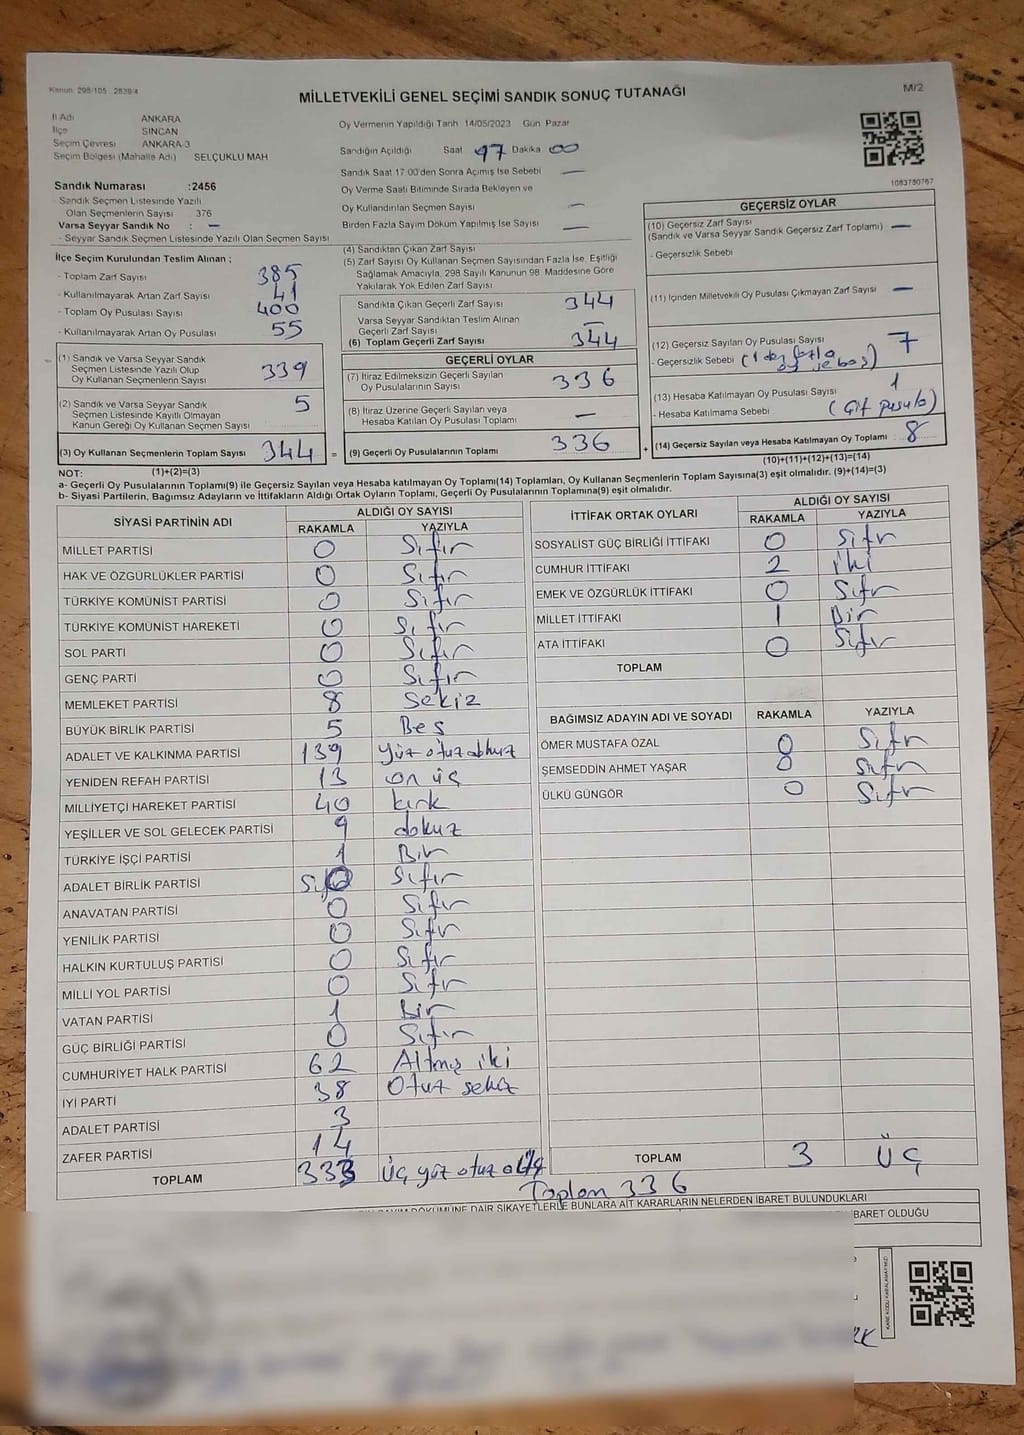 Kanun 298/105 . 2839/4
MİLLETVEKİLİ GENEL SEÇİMİ SANDIK SONUÇ TUTANAĞI
M/2
İl Adı ANKARA
İlçe SİNCAN
Seçim Çevresi ANKARA-3
Seçim Bölgesi (Mahalle Adı) SELÇUKLU MAH
Oy Vermenin Yapıldığı Tarih 14/05/2023 Gün Pazar
Sandığın Açıldığı Saat 17 Dakika 00
Sandık Saat 17:00'den Sonra Açımış İse Sebebi —
Oy Verme Saati Bitiminde Sırada Bekleyen ve
Oy Kullandırılan Seçmen Sayısı —
Birden Fazla Sayım Döküm Yapılmış İse Sayısı —
1083780767
Sandık Numarası :2456
- Sandık Seçmen Listesinde Yazılı
Olan Seçmenlerin Sayısı 376
Varsa Seyyar Sandık No : —
- Seyyar Sandık Seçmen Listesinde Yazılı Olan Seçmen Sayısı
İlçe Seçim Kurulundan Teslim Alınan ;
- Toplam Zarf Sayısı 385
- Kullanılmayarak Artan Zarf Sayısı 41
- Toplam Oy Pusulası Sayısı 400
- Kullanılmayarak Artan Oy Pusulası 55
(1) Sandık ve Varsa Seyyar Sandık
Seçmen Listesinde Yazılı Olup
Oy Kullanan Seçmenlerin Sayısı 339
(2) Sandık ve Varsa Seyyar Sandık
Seçmen Listesinde Kayıtlı Olmayan
Kanun Gereği Oy Kullanan Seçmen Sayısı 5
(3) Oy Kullanan Seçmenlerin Toplam Sayısı 344 =
(4) Sandıktan Çıkan Zarf Sayısı
(5) Zarf Sayısı Oy Kullanan Seçmen Sayısından Fazla İse, Eşitliği
Sağlamak Amacıyla, 298 Sayılı Kanunun 98. Maddesine Göre
Yakılarak Yok Edilen Zarf Sayısı
Sandıkta Çıkan Geçerli Zarf Sayısı 344
Varsa Seyyar Sandıktan Teslim Alınan
Geçerli Zarf Sayısı —
(6) Toplam Geçerli Zarf Sayısı 344
GEÇERLİ OYLAR
(7) İtiraz Edilmeksizin Geçerli Sayılan
Oy Pusulalarının Sayısı 336
(8) İtiraz Üzerine Geçerli Sayılan veya
Hesaba Katılan Oy Pusulası Toplamı —
(9) Geçerli Oy Pusulalarının Toplamı 336 +
GEÇERSİZ OYLAR
(10) Geçersiz Zarf Sayısı
(Sandık ve Varsa Seyyar Sandık Geçersiz Zarf Toplamı) —
- Geçersizlik Sebebi
(11) İçinden Milletvekili Oy Pusulası Çıkmayan Zarf Sayısı —
(12) Geçersiz Sayılan Oy Pusulası Sayısı 7
- Geçersizlik Sebebi (1 den fazla
(13) Hesaba Katılmayan Oy Pusulası Sayısı 1
- Hesaba Katılmama Sebebi (Çift pusula)
(14) Geçersiz Sayılan veya Hesaba Katılmayan Oy Toplamı 8
(10)+(11)+(12)+(13)=(14)
NOT: (1)+(2)=(3)
a- Geçerli Oy Pusulalarının Toplamı(9) ile Geçersiz Sayılan veya Hesaba katılmayan Oy Toplamı(14) Toplamları, Oy Kullanan Seçmenlerin Toplam Sayısına(3) eşit olmalıdır. (9)+(14)=(3)
b- Siyasi Partilerin, Bağımsız Adayların ve İttifakların Aldığı Ortak Oyların Toplamı, Geçerli Oy Pusulalarının Toplamına(9) eşit olmalıdır.
SİYASİ PARTİNİN ADI ALDIĞI OY SAYISI
RAKAMLA YAZIYLA
MİLLET PARTİSİ 0 Sıfır
HAK VE ÖZGÜRLÜKLER PARTİSİ 0 Sıfır
TÜRKİYE KOMÜNİST PARTİSİ 0 Sıfır
TÜRKİYE KOMÜNİST HAREKETİ 0 Sıfır
SOL PARTİ 0 Sıfır
GENÇ PARTİ 0 Sıfır
MEMLEKET PARTİSİ 8 Sekiz
BÜYÜK BİRLİK PARTİSİ 5 Beş
ADALET VE KALKINMA PARTİSİ 139 Yüz otuz dokuz
YENİDEN REFAH PARTİSİ 13 on üç
MİLLİYETÇİ HAREKET PARTİSİ 40 kırk
YEŞİLLER VE SOL GELECEK PARTİSİ 9 dokuz
TÜRKİYE İŞÇİ PARTİSİ 1 Bir
ADALET BİRLİK PARTİSİ 0 Sıfır
ANAVATAN PARTİSİ 0 Sıfır
YENİLİK PARTİSİ 0 Sıfır
HALKIN KURTULUŞ PARTİSİ 0 Sıfır
MİLLİ YOL PARTİSİ 0 Sıfır
VATAN PARTİSİ 1 Bir
GÜÇ BİRLİĞİ PARTİSİ 0 Sıfır
CUMHURİYET HALK PARTİSİ 62 Altmış iki
İYİ PARTİ 38 Otuz sekiz
ADALET PARTİSİ 3
ZAFER PARTİSİ 14
TOPLAM 333 üç yüz otuz üç
İTTİFAK ORTAK OYLARI ALDIĞI OY SAYISI
RAKAMLA YAZIYLA
SOSYALİST GÜÇ BİRLİĞİ İTTİFAKI 0 Sıfır
CUMHUR İTTİFAKI 2 iki
EMEK VE ÖZGÜRLÜK İTTİFAKI 0 Sıfır
MİLLET İTTİFAKI 1 Bir
ATA İTTİFAKI 0 Sıfır
TOPLAM
BAĞIMSIZ ADAYIN ADI VE SOYADI RAKAMLA YAZIYLA
ÖMER MUSTAFA ÖZAL 0 Sıfır
ŞEMSEDDİN AHMET YAŞAR 0 Sıfır
ÜLKÜ GÜNGÖR 0 Sıfır
TOPLAM 3 ÜÇ
Toplam 336
SAYIM DÖKÜMÜNE DAİR ŞİKAYETLERLE BUNLARA AİT KARARLARIN NELERDEN İBARET BULUNDUKLARI
İBARET OLDUĞU